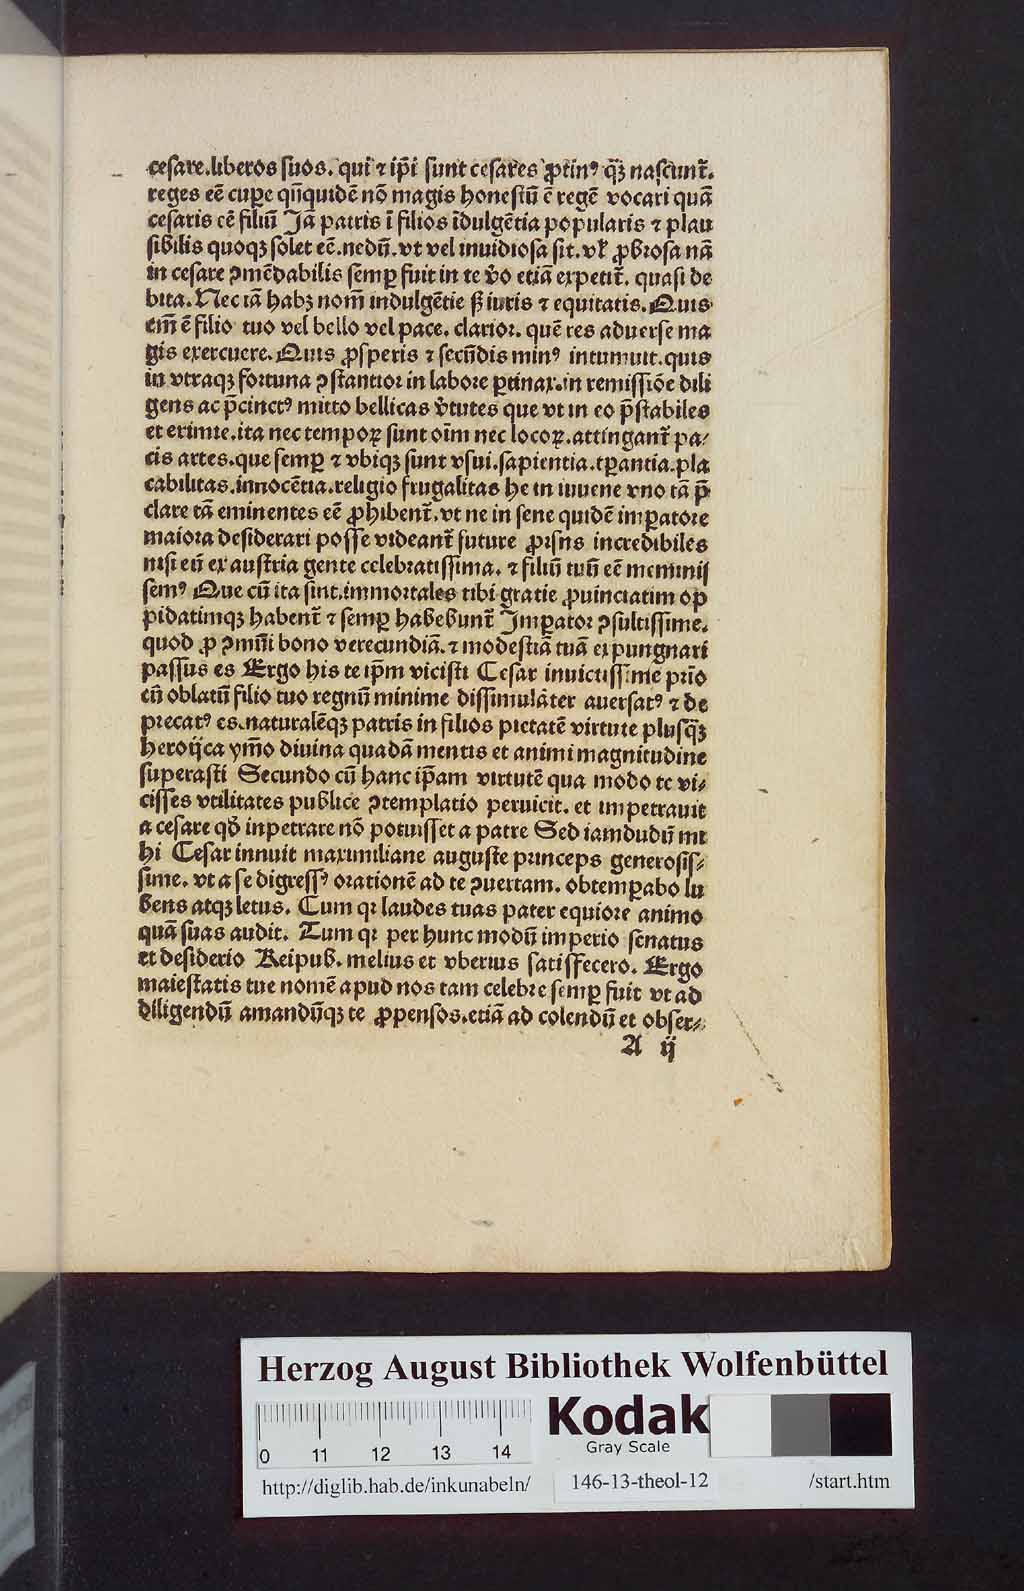 cesare.liberos suos. qui ⁊ ip̄i sunt cesares ꝓtinꝰ qꝫ̄ nascunt̄.
reges eē cuꝑe qn̄quidē nō magis honestū ē regē vocari quā
cesaris eē filiū Jā patris ī filios īdulgētia popularis ⁊ plau
sibilis quoqꝫ solet eē.nedū.vt vel inuidiosa sit.vl̕ ꝓbrosa nā
in cesare ꝯmēdabilis semꝑ fuit in te v̄o etiā expetit̄. quasi de
bita.Nec iā habꝫ nom̄ indulgētie sꝫ iuris ⁊ equitatis.Quis
em̄ ē filio tuo vel bello vel pace. clarior. quē res aduerse ma
gis exercuere.Quis ꝓsperis ⁊ secūdis minꝰ intumuit.quis
in vtraqꝫ fortuna ꝯstantior in labore ꝑtinax.in remissiōe dili
gens ac p̄cinctꝰ mitto bellicas v̄tutes que vt in eo p̄stabiles
et erimie.ita nec tempoꝝ sunt oīm nec locoꝝ.attingant̄ pa⸗
cis artes.que semꝑ ⁊ vbiqꝫ sunt vsui.sapientia.tꝑantia.pla
cabilitas.innocētia.religio frugalitas he in iuuene vno tā p̄
clare tā eminentes eē ꝓhibent̄.vt ne in sene quidē imꝑatore
maiora desiderari posse videant̄ future ꝓrsus incredibiles
nisi eū ex austria gente celebratissima. ⁊ filiū tuū eē meminis
semꝰ Que cū ita sint.immortales tibi gratie ꝓuinciatim op
pidatimqꝫ habent̄ ⁊ semꝑ habebunt̄ Jmꝑator ꝯsultissime.
quod ꝓ ꝯmūi bono verecundiā.⁊ modestiā tuā expungnari
passus es Ergo his te ip̄m vicisti Cesar inuictissime prīo
cū oblatū filio tuo regnū minime dissimulāter auersatꝰ ⁊ de
precatꝰ es.naturalēqꝫ patris in filios pietatē virtute plusqꝫ̄
heroijca ymo̅ diuina quadā mentis et animi magnitudine
superasti Secundo cū hanc ip̄am virtutē qua modo te vi⸗
cisses vtilitates publice ꝯtemplatio peruicit. et impetrauit
a cesare qđ inpetrare nō potuisset a patre Sed iamdudū mi
hi Cesar innuit maxumiliane auguste princeps generosis⸗
sime. vt a se digressꝰ orationē ad te ꝯuertam. obtemꝑabo lu
bens atqꝫ letus. Cum qꝛ laudes tuas pater equiore animo
quā suas audit. Tum qꝛ per hunc modū imperio senatus
et desiderio Reipub. melius et vberius satisfecero. Ergo
maiestatis tue nomē apud nos tam celebre semꝑ fuit vt ad
diligendū amandūqꝫ te ꝓpensos.etiā ad colendū et obser⸗
A ij
Herzog August Bibliothek Wolfenbüttel
Kodak
Gray Scale
0 11 12 13 14
http://diglib.hab.de/inkunabeln/ 146-13-theol-12 /start.htm